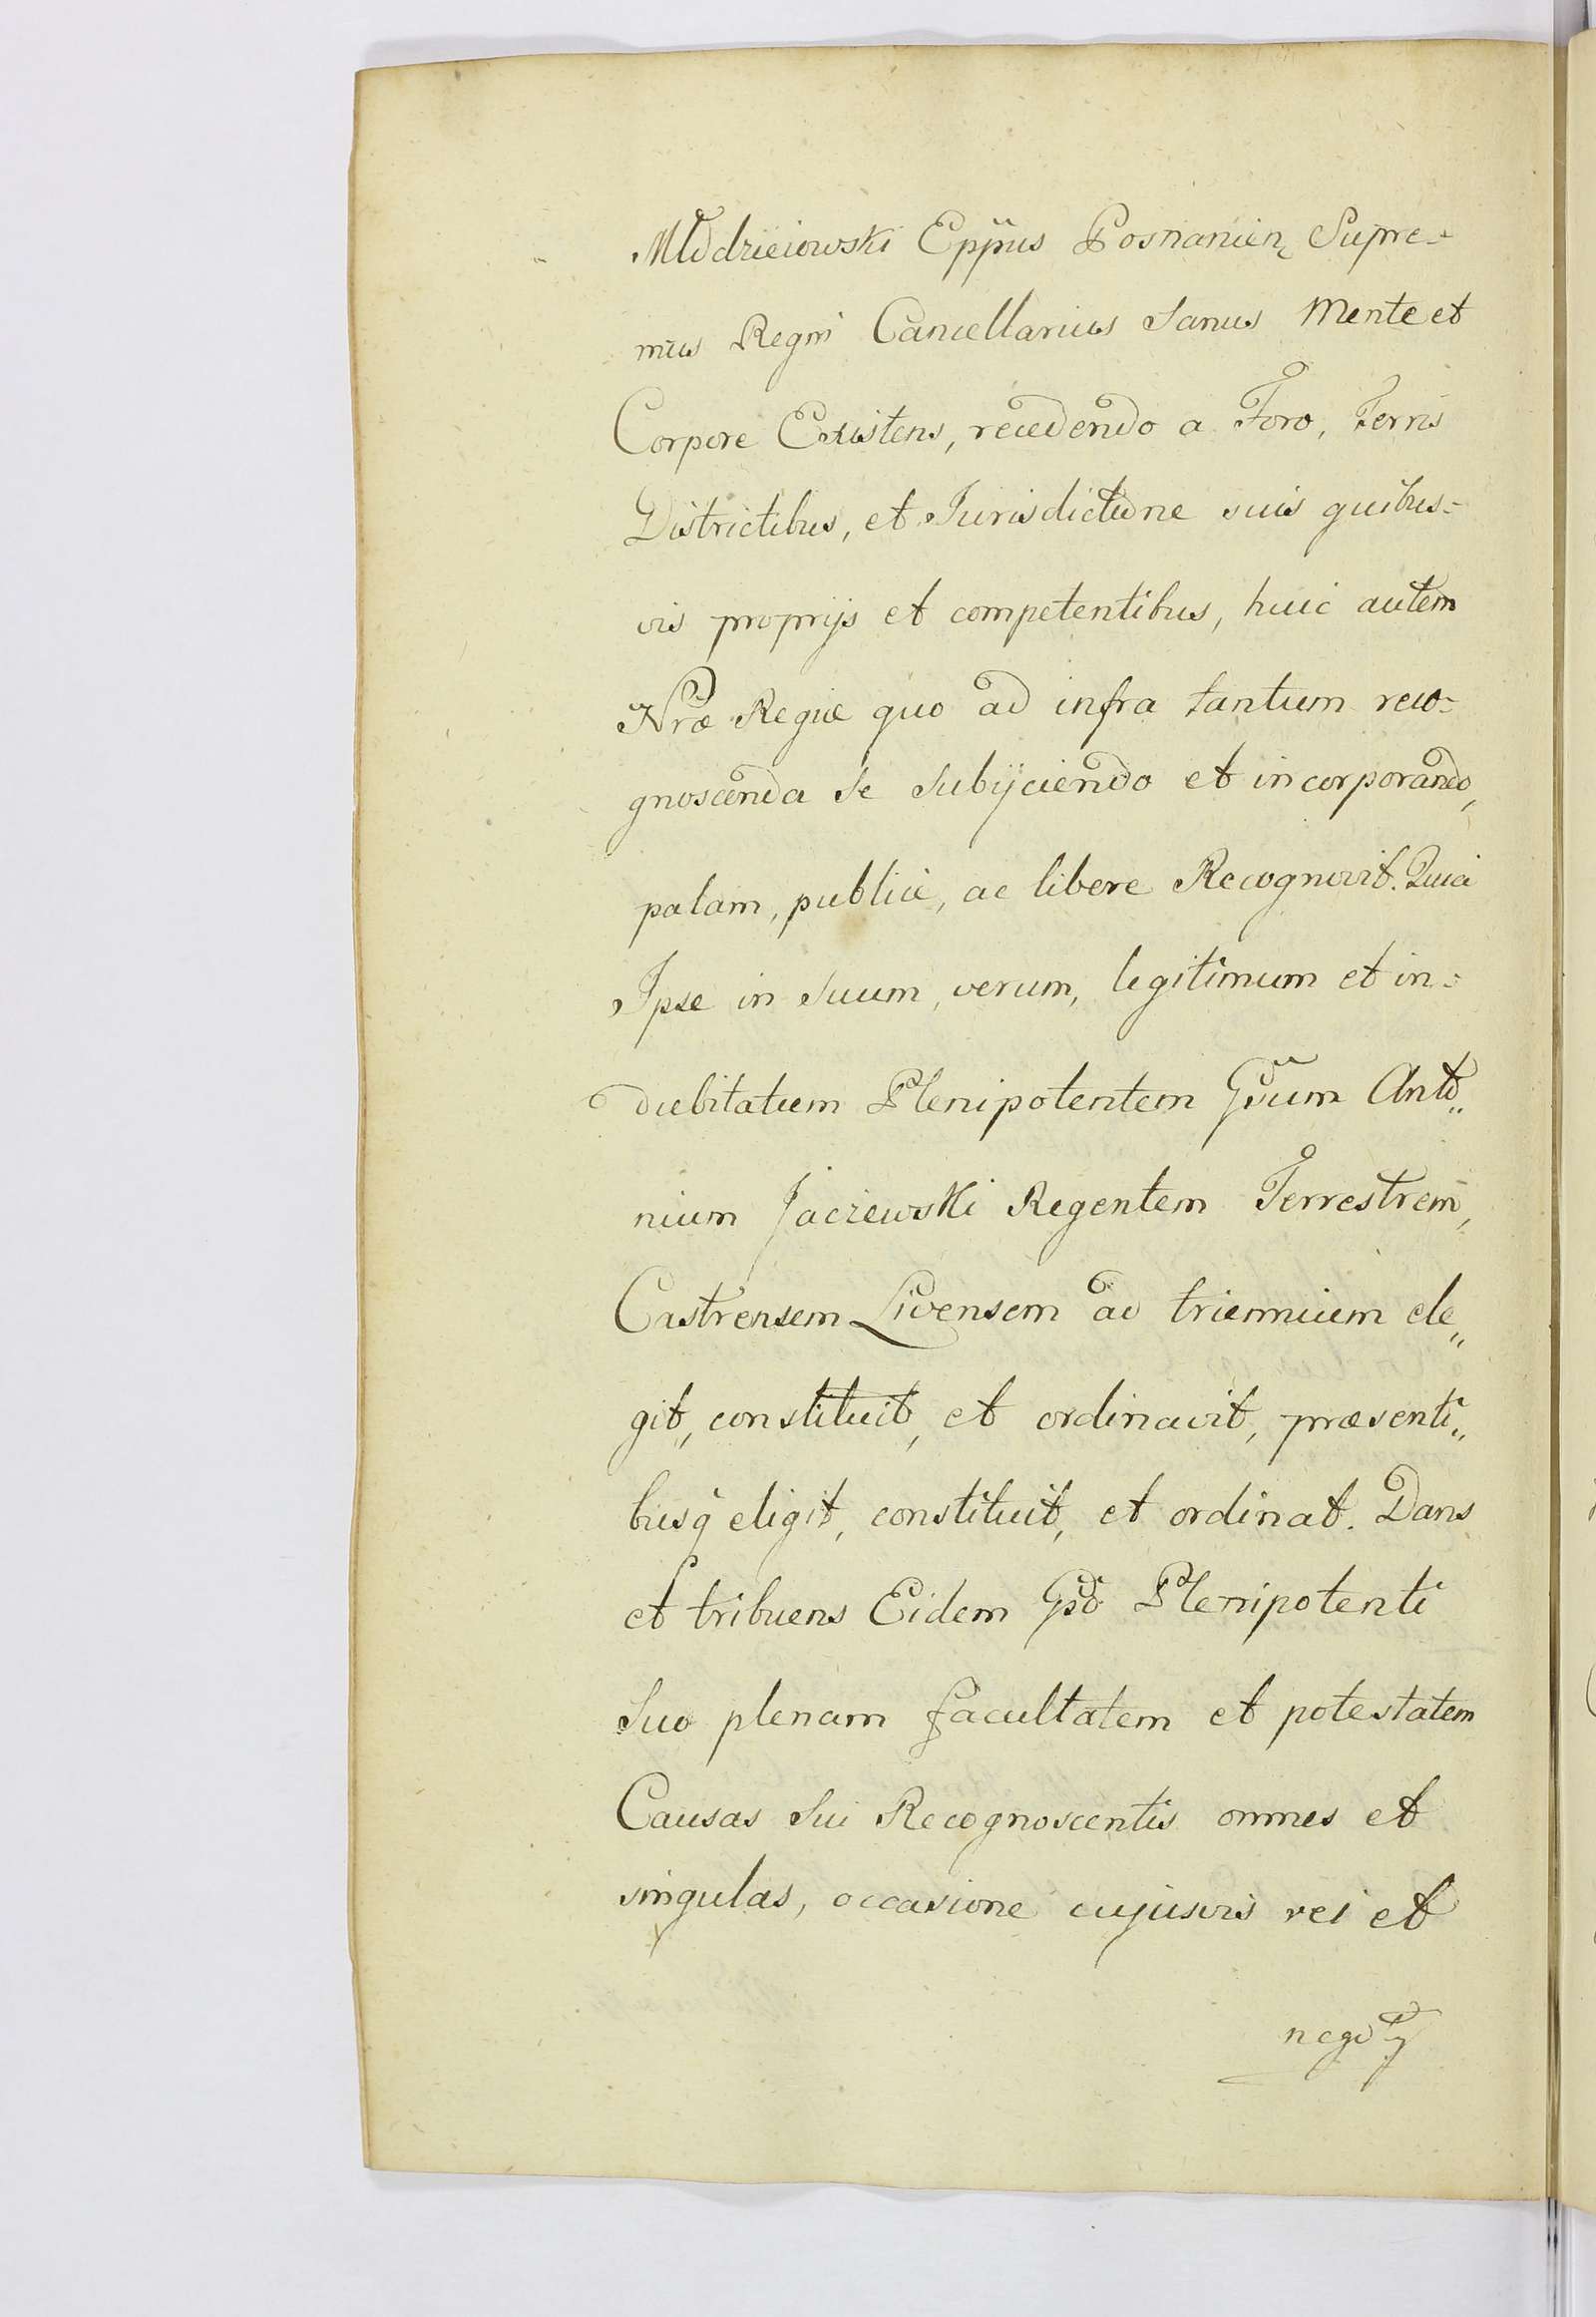 Młodzieiowski Eppus Posnanien Supre=
mus Regni Cancellarius Sanus Mente et
Corpore Existens, recedendo a Foro, Terris
Districtibus, et Jurisdictione suis quibus=
vis proprijs et competentibus, huic autem
Nræ Regiæ quo ad infra tantum reco=
gnoscenda se subijciendo et incorporando,
palam, publice, ac libere Recognovit. Quia
Ipse in Suum, verum, legitimum et in=
dubitatum Plenipotentem Gsum Anto„
nium Jaczewski Regentem Terrestrem,
Castrensem Livensem ad triennium ele„
git, constituit, et ordinavit, præsenti„
busq̃ eligit, constituit, et ordinat. Dans
et tribuens Eidem Gso Plenipotenti
Suo plenam facultatem et potestatem
Causas Sui Recognoscentis omnes et
singulas, occasione cujusvis rei et
nego